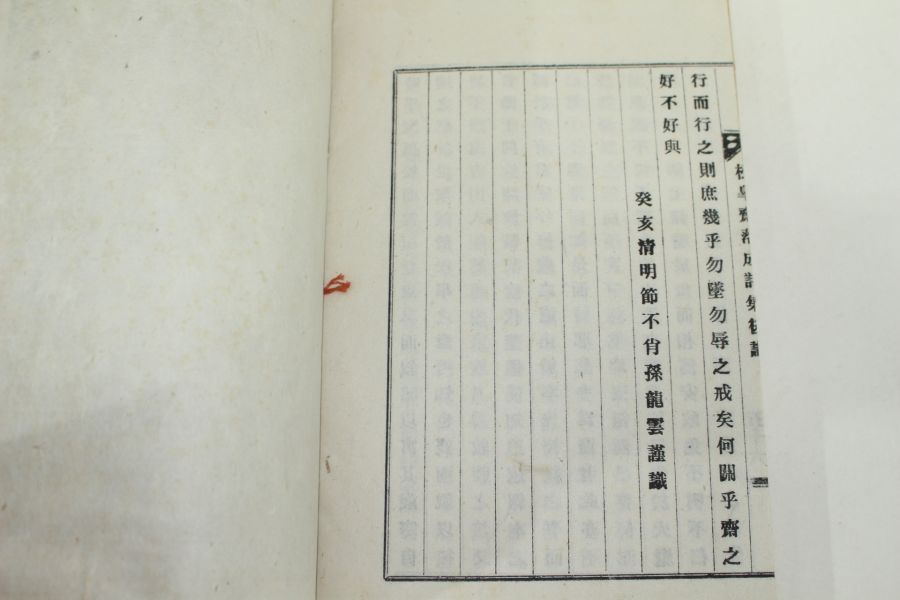 行而行之則庶幾乎勿墜勿辱之戒矣何關乎齋之
好不好與
癸亥清明節不肖孫龍雲謹識
齋落成詩集後識